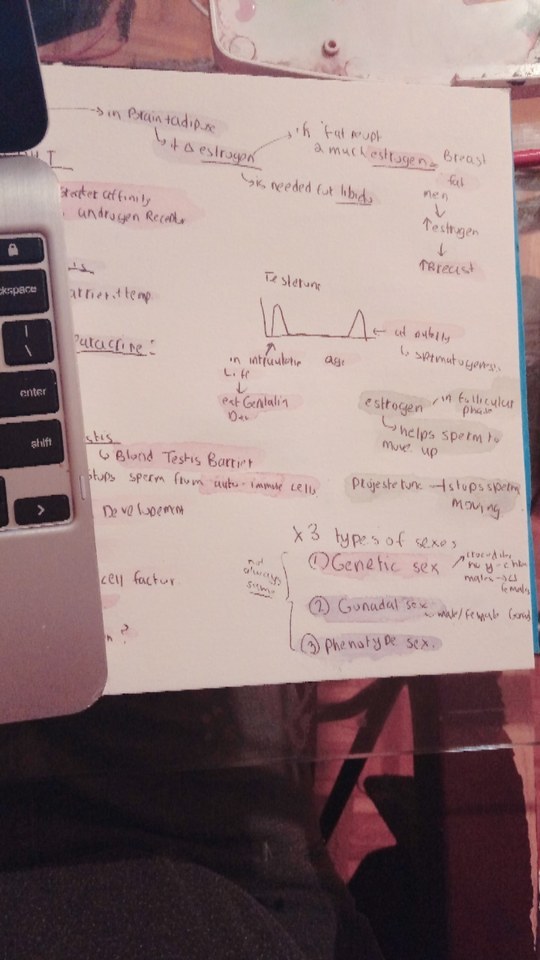 → in Brain + adipose
↳ it Δ estrogen
Fat men
2 much estrogen = Breast
↳ is needed for libido
↑estrogen
↓
↑Breast
androgen
affinity
Testerone
barrier. temp
← at puberty
↳ spermatogenesis
in intrauterine
age
Life
↓
ext Genitalia
Dev
Paracrine:
estrogen
in follicular
phase
↳ helps sperm to
move up
↳ Blood Testis Barrier
stops sperm from auto-immune cells
progesterone → stops sperm
moving
Development
x 3 types of sexes
① Genetic sex
not
always
same
cell factor.
② Gonadal sex
male/female Gonad
③ phenotype sex.
ckspace
|
\
enter
shift
>